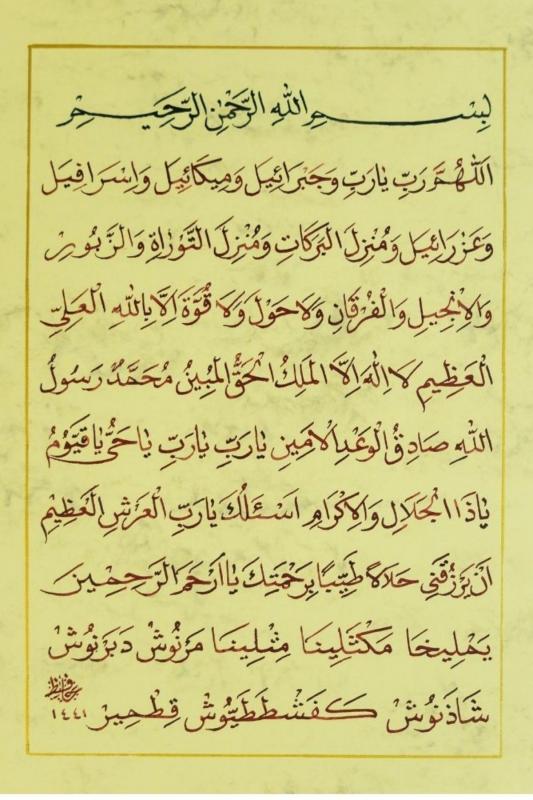 بِسْمِ اللهِ الرَّحْمٰنِ الرَّحِيمِ
اَللّٰهُمَّ رَبِّ يَارَبِّ وَجَبْرَائِيلَ وَمِيكَائِيلَ وَاِسْرَافِيلَ
وَعَزْرَائِيلَ وَمُنْزِلَ الْبَرَكَاتِ وَمُنْزِلَ التَّوْرَاةِ وَالزَّبُورِ
وَالْاِنْجِيلِ وَالْفُرْقَانِ وَلَاحَوْلَ وَلَا قُوَّةَ اِلَّا بِاللهِ الْعَلِيِّ
الْعَظِيمِ لَا اِلٰهَ اِلَّا الْمَلِكُ الْحَقُّ الْمُبِينُ مُحَمَّدٌ رَسُولُ
اللهِ صَادِقُ الْوَعْدِ الْاَمِينِ يَارَبِّ يَارَبِّ يَاحَيُّ يَاقَيُّومُ
يَاذَا الْجَلَالِ وَالْاِكْرَامِ اَسْئَلُكَ يَارَبِّ الْعَرْشِ الْعَظِيمِ
اَنْ يَرْزُقَنِي حَلَالًا طَيِّبًا بِرَحْمَتِكَ يَا اَرْحَمَ الرَّحِمِينَ
يَمْلِيخَا مَكْثَلِينَا مِثْلِينَا مَرْنُوشْ دَبَرْنُوشْ
شَاذَنُوشْ كَفَشْطَطَيُّوشْ قِطْمِيرْ
١٤٤١